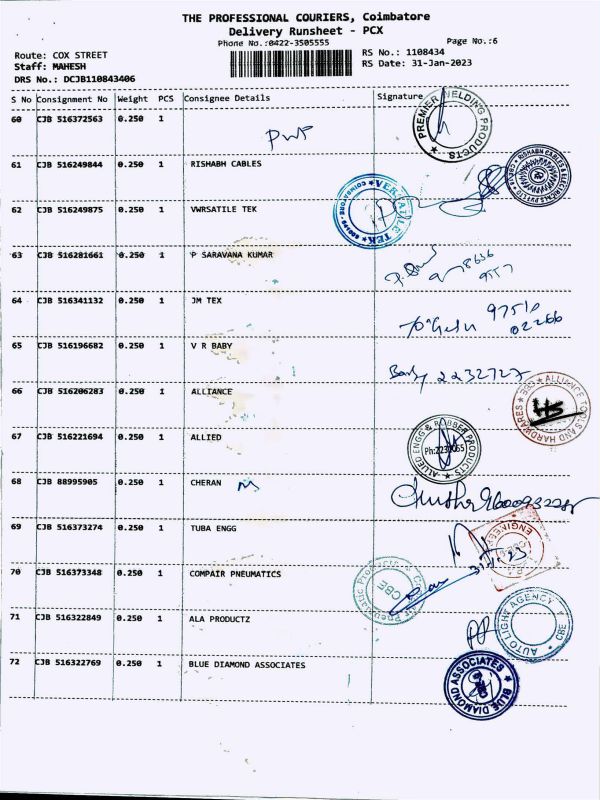 THE PROFESSIONAL COURIERS, Coimbatore
Delivery Runsheet - PCX
Phone No.:0422-3505555
Page No.:6
Route: COX STREET
Staff: MAHESH
DRS No.: DCJB110843406
RS No.: 1108434
RS Date: 31-Jan-2023
S No Consignment No Weight PCS Consignee Details Signature
60 CJB 516372563 0.250 1
PWP
PREMIER WELDING PRODUCTS
61 CJB 516249844 0.250 1 RISHABH CABLES
62 CJB 516249875 0.250 1 VWRSATILE TEK
VERSATILE TEK
63 CJB 516281661 0.250 1 P SARAVANA KUMAR
64 CJB 516341132 0.250 1 JM TEX
97510
02266
65 CJB 516196682 0.250 1 V R BABY
Baby 2232727
66 CJB 516206283 0.250 1 ALLIANCE
ALLIANCE TOOLS AND HARDWARES CBE
67 CJB 516221694 0.250 1 ALLIED
ALLIED ENGG & RUBBER PRODUCTS
68 CJB 88995905 0.250 1 CHERAN
69 CJB 516373274 0.250 1 TUBA ENGG
70 CJB 516373348 0.250 1 COMPAIR PNEUMATICS
Pneumatic Products & Co
CBE
71 CJB 516322849 0.250 1 ALA PRODUCTZ
AUTO LIGHT AGENCY CBE
72 CJB 516322769 0.250 1 BLUE DIAMOND ASSOCIATES
BLUE DIAMOND ASSOCIATES